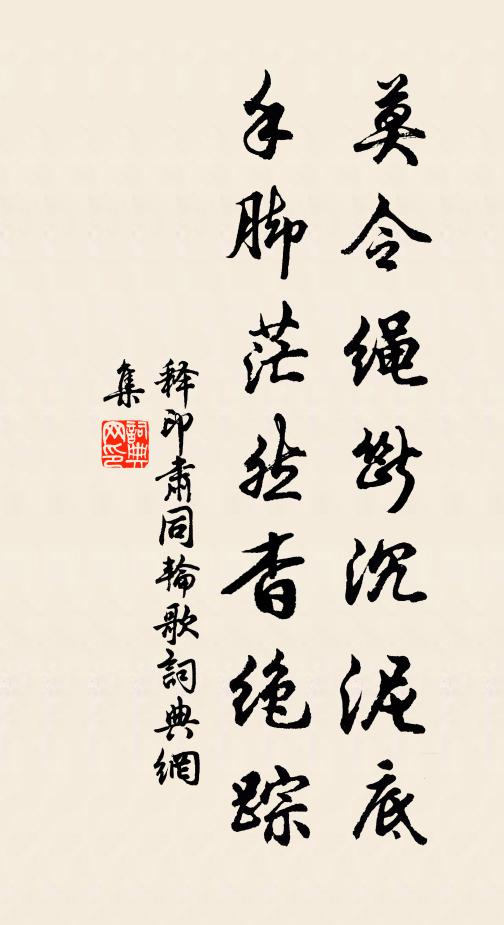 莫令绳断沉泥底
手脚茫然杳绝踪
释印肃同轮歌词典網
集
詞典网印